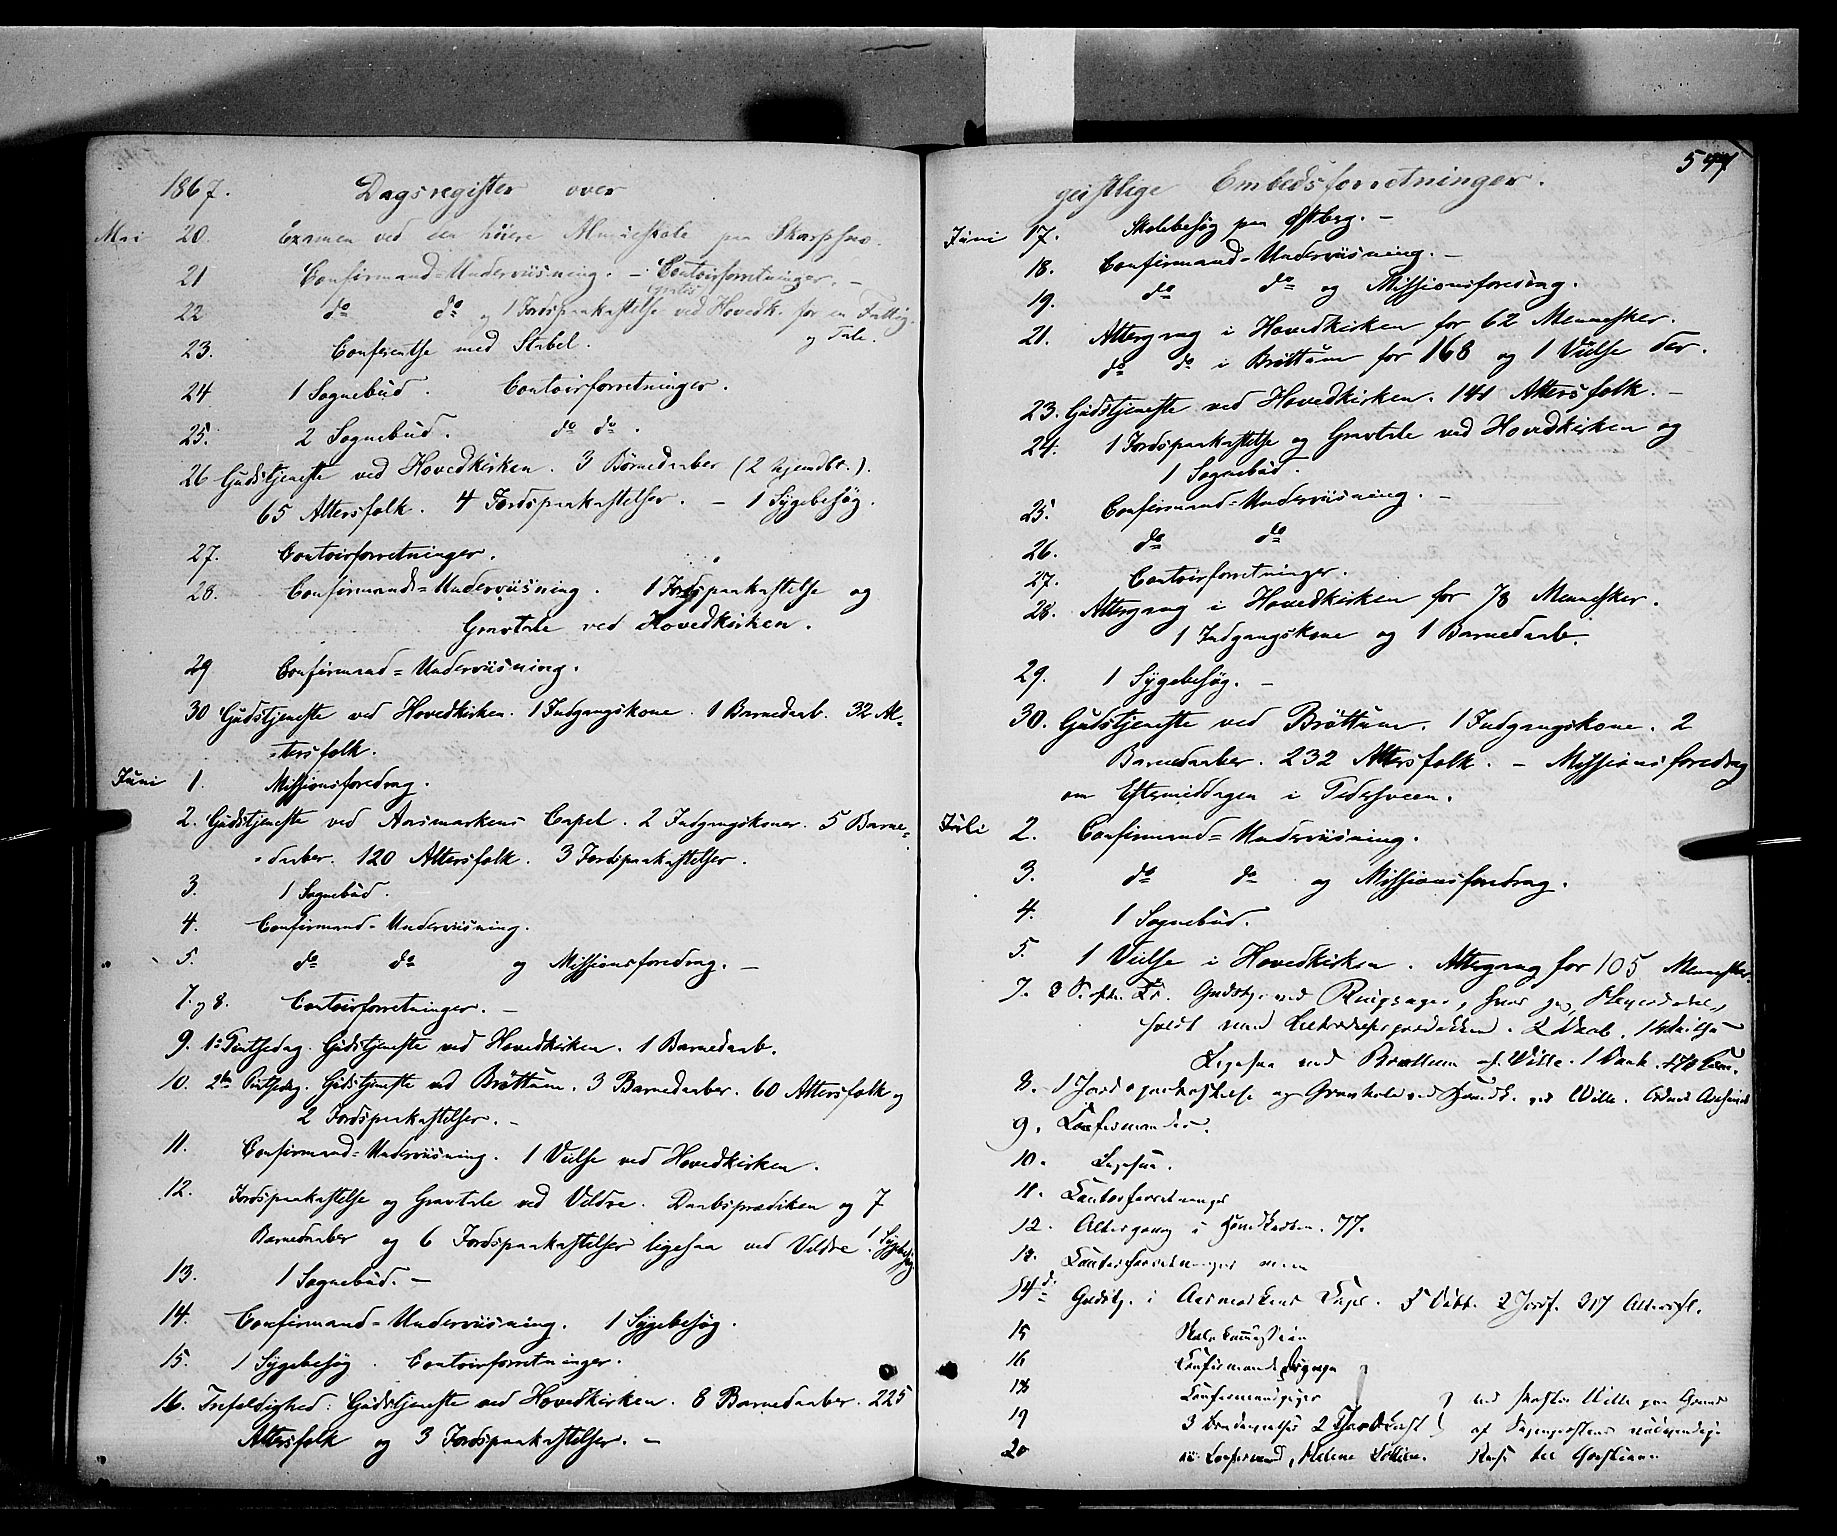 1867. Dagsregister over
Mai 20. Examen ved den høiere Almueskole paa Skarpsno.
21 Confirmand=Underviisning. — Contoirforretninger. —
gratis
22 do do og 1 Jordspaakastelse ved Hovedk. for en Fattig
og Tale.
23. Conferentse med Stabel.
24 1 Sognebud. Contoirforretninger.
25. 2 Sognebud. do do.
26 Gudstjeneste ved Hovedkirken. 3 Børnedaaber (2 hjemdbt.).
65 Altersfolk. 4 Jordspaakastelser. — 1 Sygebesøg.
27. Contoirforretninger.
28. Confirmand=Underviisning. 1 Jordspaakastelse og
Gravtale ved Hovedkirken.
29 Confirmand=Underviisning.
30 Gudstjeneste ved Hovedkirken. 1 Indgangskone. 1 Barnedaab. 32 Al=
=tersfolk.
Juni 1. Missionsforedrag.
2. Gudstjeneste ved Aasmarkens Capel. 2 Indgangskoner. 5 Barne=
=daaber. 120 Altersfolk. 3 Jordspaakastelser.
3. 1 Sognebud.
4. Confirmand=Underviisning.
5. do do og Missionsforedrag. —
7. og 8. Contoirforretninger. —
9. 1ste Pintsedag. Gudstjeneste ved Hovedkirken. 1 Barnedaab.
10. 2den Pintsedag. Gudstjeneste ved Brøttum. 3 Barnedaaber. 60 Altersfolk og
2 Jordspaakastelser. —
11. Confirmand=Underviisning. 1 Vielse ved Hovedkirken.
12. Jordspaakastelse og Gravtale ved Veldre. Daabsprædiken og 7
Barnedaaber og 6 Jordspaakastelser ligesaa ved Veldre. 1 Sygebesøg
13. 1 Sognebud. —
14. Confirmand=Underviisning. 1 Sygebesøg.
15. 1 Sygebesøg. Contoirforretninger.
16. Trefoldighed: Gudstjeneste ved Hovedkirken. 8 Barnedaaber. 225
Altersfolk og 3 Jordspaakastelser. —
geistlige Embedsforretninger.
547
Juni 17. Skolebesøg paa Østberg. —
18. Confirmand=Underviisning. —
19. do do og Missionsforedrag.
21. Altergang i Hovedkirken for 62 Mennesker.
do do i Brøttum for 168 og 1 Vielse der.
23. Gudstjeneste ved Hovedkirken. 141 Altersfolk. —
24. 1 Jordspaakastelse og Gravtale ved Hovedkirken og
1 Sognebud.
25. Confirmand=Underviisning. —
26. do do
27. Contoirforretninger.
28. Altergang i Hovedkirken for 78 Mennesker.
1 Indgangskone og 1 Barnedaab.
29. 1 Sygebesøg. —
30. Gudstjeneste ved Brøttum. 1 Indgangskone. 2
Barnedaaber. 232 Altersfolk. — Missionsforedrag
om Eftermiddagen i Pedersveen.
Juli 2. Confirmand=Underviisning.
3. do do og Missionsforedrag.
4. 1 Sognebud.
5. 1 Vielse i Hovedkirken. Altergang for 105 Mennesker.
7. 3 S. efter Tr. Gudstj. ved Ringsager, hvor jeg,
holdt min 2 Daab.
Ligesaa ved Brøttum af Wille. 1 Daab.
8. 1 Jordspaakastelse og Gravtale ved Hovedk. ved Wille.
9. Confirmander.
10. Ligesaa.
11. Contorforretninger
12. Altergang i Hovedkirken. 77.
13. Contorforretninger
14de Gudstj. i Aasmarkens Capel. 5 Døbt. 2 Jordf. 317 Altersfl.
15 Skolecommission
16 Confirmand
18 Confirmand
19 3 2 Jordkast } ved Wille paa Grund
af Sognepræstens nødvendige
20 Confirmand, Helene Reise til Christiania